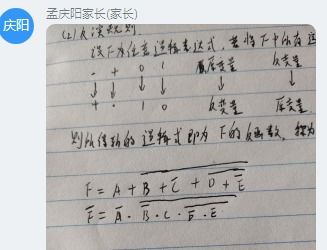 庆阳
孟庆阳家长(家长)
(2)反演规则
设F为任意逻辑表达式,若将F中所有运
· + 0 1 原变量 反变量
↓ ↓ ↓ ↓ ↓ ↓
+ · 1 0 反变量 原变量
则所得新的逻辑式即为F的反函数,称为
F = A + \overline{B + \overline{C} + \overline{D + \overline{E}}}
\overline{F} = \overline{A} · \overline{\overline{B} · C · \overline{\overline{D} · E}}